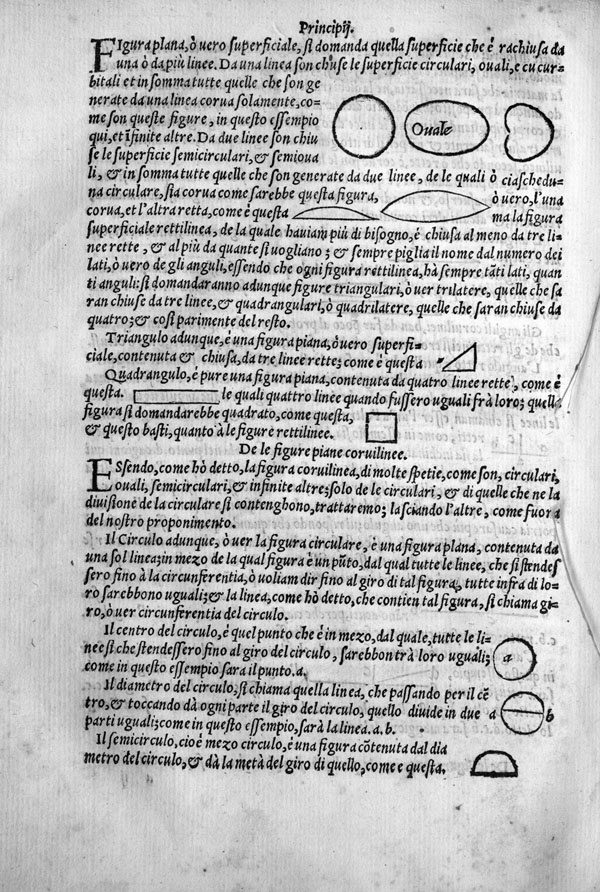 Principij.
FIgura plana, ò vero superficiale, si domanda quella superficie che è rachiusa da
una ò da più linee. Da una linea son chiuse le superficie circulari, ouali, e cucur-
bitali et in somma tutte quelle che son ge
nerate da una linea corua solamente, co-
me son queste figure, in questo essempio
qui, et ĩfinite altre. Da due linee son chiu
se le superficie semicirculari, & semioua
li, & in somma tutte quelle che son generate da due linee, de le quali ò ciaschedu-
na circulare, sia corua come sarebbe questa figura, ò vero, l'una
corua, et l'altra retta, come è questa ma la figura
superficiale rettilinea, de la quale hauiam più di bisogno, è chiusa al meno da tre li-
nee rette, & al più da quante si vogliano; & sempre piglia il nome dal numero dei
lati, ò vero de gli anguli, essendo che ogni figura rettilinea, hà sempre tãti lati, quan
ti anguli: si domandaranno adunque figure triangulari, ò uer trilatere, quelle che sa
ran chiuse da tre linee, & quadrangulari, ò quadrilatere, quelle che saran chiuse da
quatro; & così parimente del resto.
Triangulo adunque, è una figura piana, ò uero superfi-
ciale, contenuta & chiusa, da tre linee rette; come è questa
Quadrangulo, è pure una figura piana, contenuta da quatro linee rette, come è
questa. le quali quattro linee quando fussero uguali frà loro; quella
figura si domandarebbe quadrato, come questa,
& questo basti, quanto à le figure rettilinee.
De le figure piane coruilinee.
ESsendo, come hò detto, la figura coruilinea, di molte spetie, come son, circulari,
ouali, semicirculari, & infinite altre; solo de le circulari, & di quelle che ne la
divisione de la circulare si contenghono, trattaremo; lasciando l'altre, come fuora
del nostro proponimento.
Il Circulo adunque, ò uer la figura circulare, è una figura plana, contenuta da
una sol linea; in mezo de la qual figura è un pũto, dal qual tutte le linee, che si stendes
sero fino à la circunferentia, ò voliam dir fino al giro di tal figura, tutte infra di lo-
ro sarebbono uguali; & la linea, come hò detto, che contien tal figura, si chiama gi-
ro, ò uer circunferentia del circulo.
Il centro del circulo, è quel punto che è in mezo, dal quale, tutte le li-
nee si che stendessero fino al giro del circulo, sarebbon trà loro uguali;
come in questo essempio sara il punto. a.
Il diametro del circulo, si chiama quella linea, che passando per il cẽ
tro, & toccando dà ogni parte il giro del circulo, quello divide in due
parti uguali; come in questo essempio, sarà la linea. a. b.
Il semicirculo, cioè mezo circulo, è una figura cõtenuta dal dia
metro del circulo, & dà la metà del giro di quello, come e questa.
Ouale
a
a b